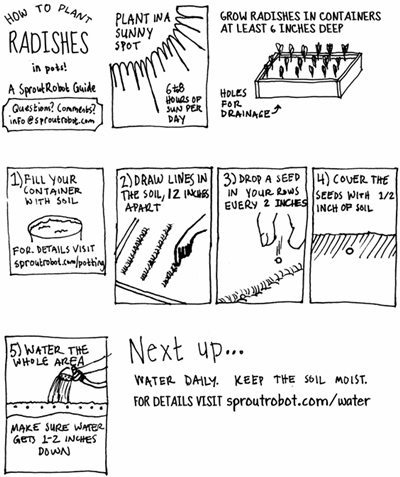 HOW TO PLANT
RADISHES
in pots!
A SproutRobot Guide
Questions? Comments?
info@sproutrobot.com
PLANT IN A
SUNNY
SPOT
6 to 8
HOURS OF
SUN PER
DAY
GROW RADISHES IN CONTAINERS
AT LEAST 6 INCHES DEEP
HOLES
FOR
DRAINAGE
1) FILL YOUR
CONTAINER
WITH SOIL
FOR DETAILS VISIT
sproutrobot.com/potting
2) DRAW LINES IN
THE SOIL, 12 INCHES
APART
3) DROP A SEED
IN YOUR ROWS
EVERY 2 INCHES
4) COVER THE
SEEDS WITH 1/2
INCH OF SOIL
5) WATER THE
WHOLE AREA
MAKE SURE WATER
GETS 1-2 INCHES
DOWN
Next up...
WATER DAILY. KEEP THE SOIL MOIST.
FOR DETAILS VISIT sproutrobot.com/water